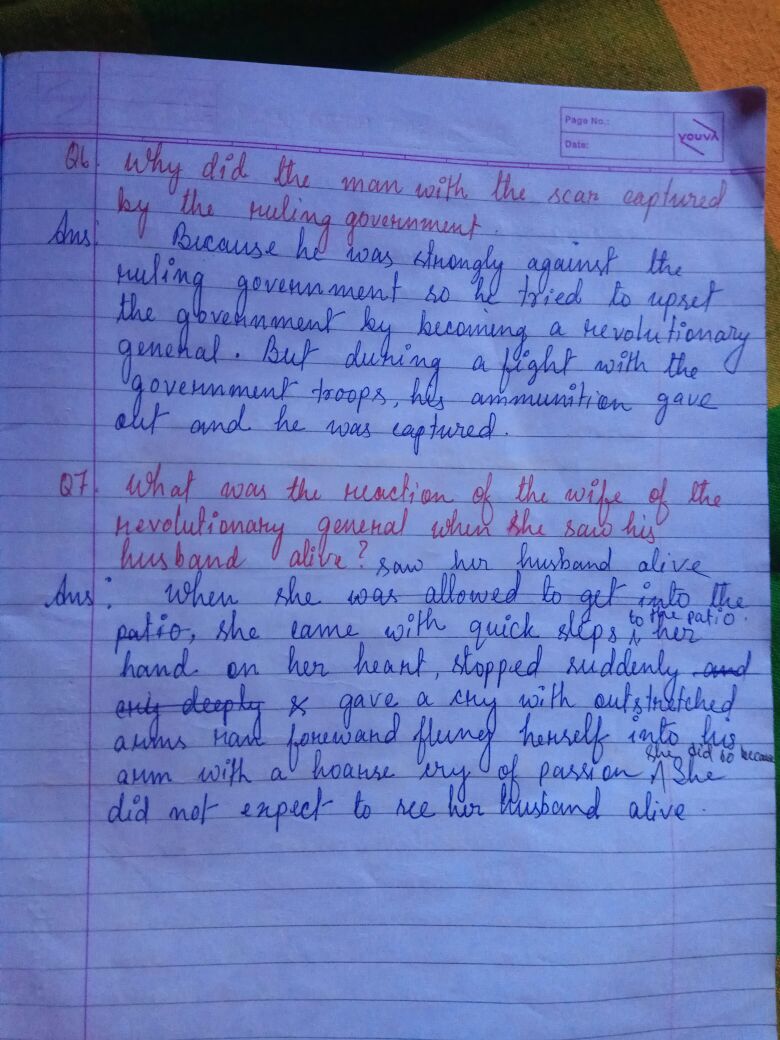 Page No.:
Date:
youva
Q6. Why did the man with the scar captured
by the ruling government.
Ans: Because he was strongly against the
ruling government so he tried to upset
the government by becoming a revolutionary
general. But during a fight with the
government troops, his ammunition gave
out and he was captured.
Q7. What was the reaction of the wife of the
revolutionary general when she saw his
husband alive? saw her husband alive
Ans: When she was allowed to get into the
patio, she came with quick steps to the patio. her
hand on her heart, stopped suddenly and
cry deeply & gave a cry with outstretched
arms ran foreward flung herself into his
arm with a hoarse cry of passion. she did so because She
did not expect to see her husband alive.